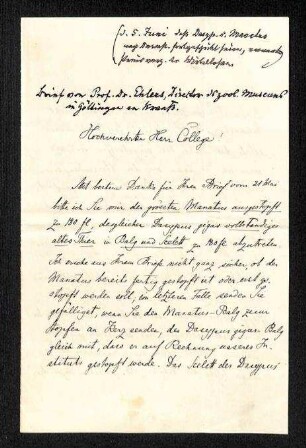 d. 5. Juni des Dasyp. u. Manatus
Brief von Prof. Dr. Ehlers, Director d. zool. Museums
in Göttingen an Krauß.
Hochverehrter Herr College!
Mit bestem Danke für Ihren Brief vom 21 Mai
bitte ich Sie mir den grössten Manatus ausgestopft
zu 190 fl, desgleichen Dasypus gigas vollständiges
altes Thier in Balg und Scelett zu 180 fl abzutreten.
Ich ersehe aus Ihrem Briefe nicht ganz sicher, ob der
Manatus bereits fertig gestopft ist oder erst ge-
stopft werden soll, im letzteren Falle senden Sie
gefälligst, wenn Sie den Manatus-Balg zum
Stopfen an Herz senden, den Dasypus gigas-Balg
gleich mit, dass er auf Rechnung unseres In-
stituts gestopft werde. Das Scelett des Dasypus